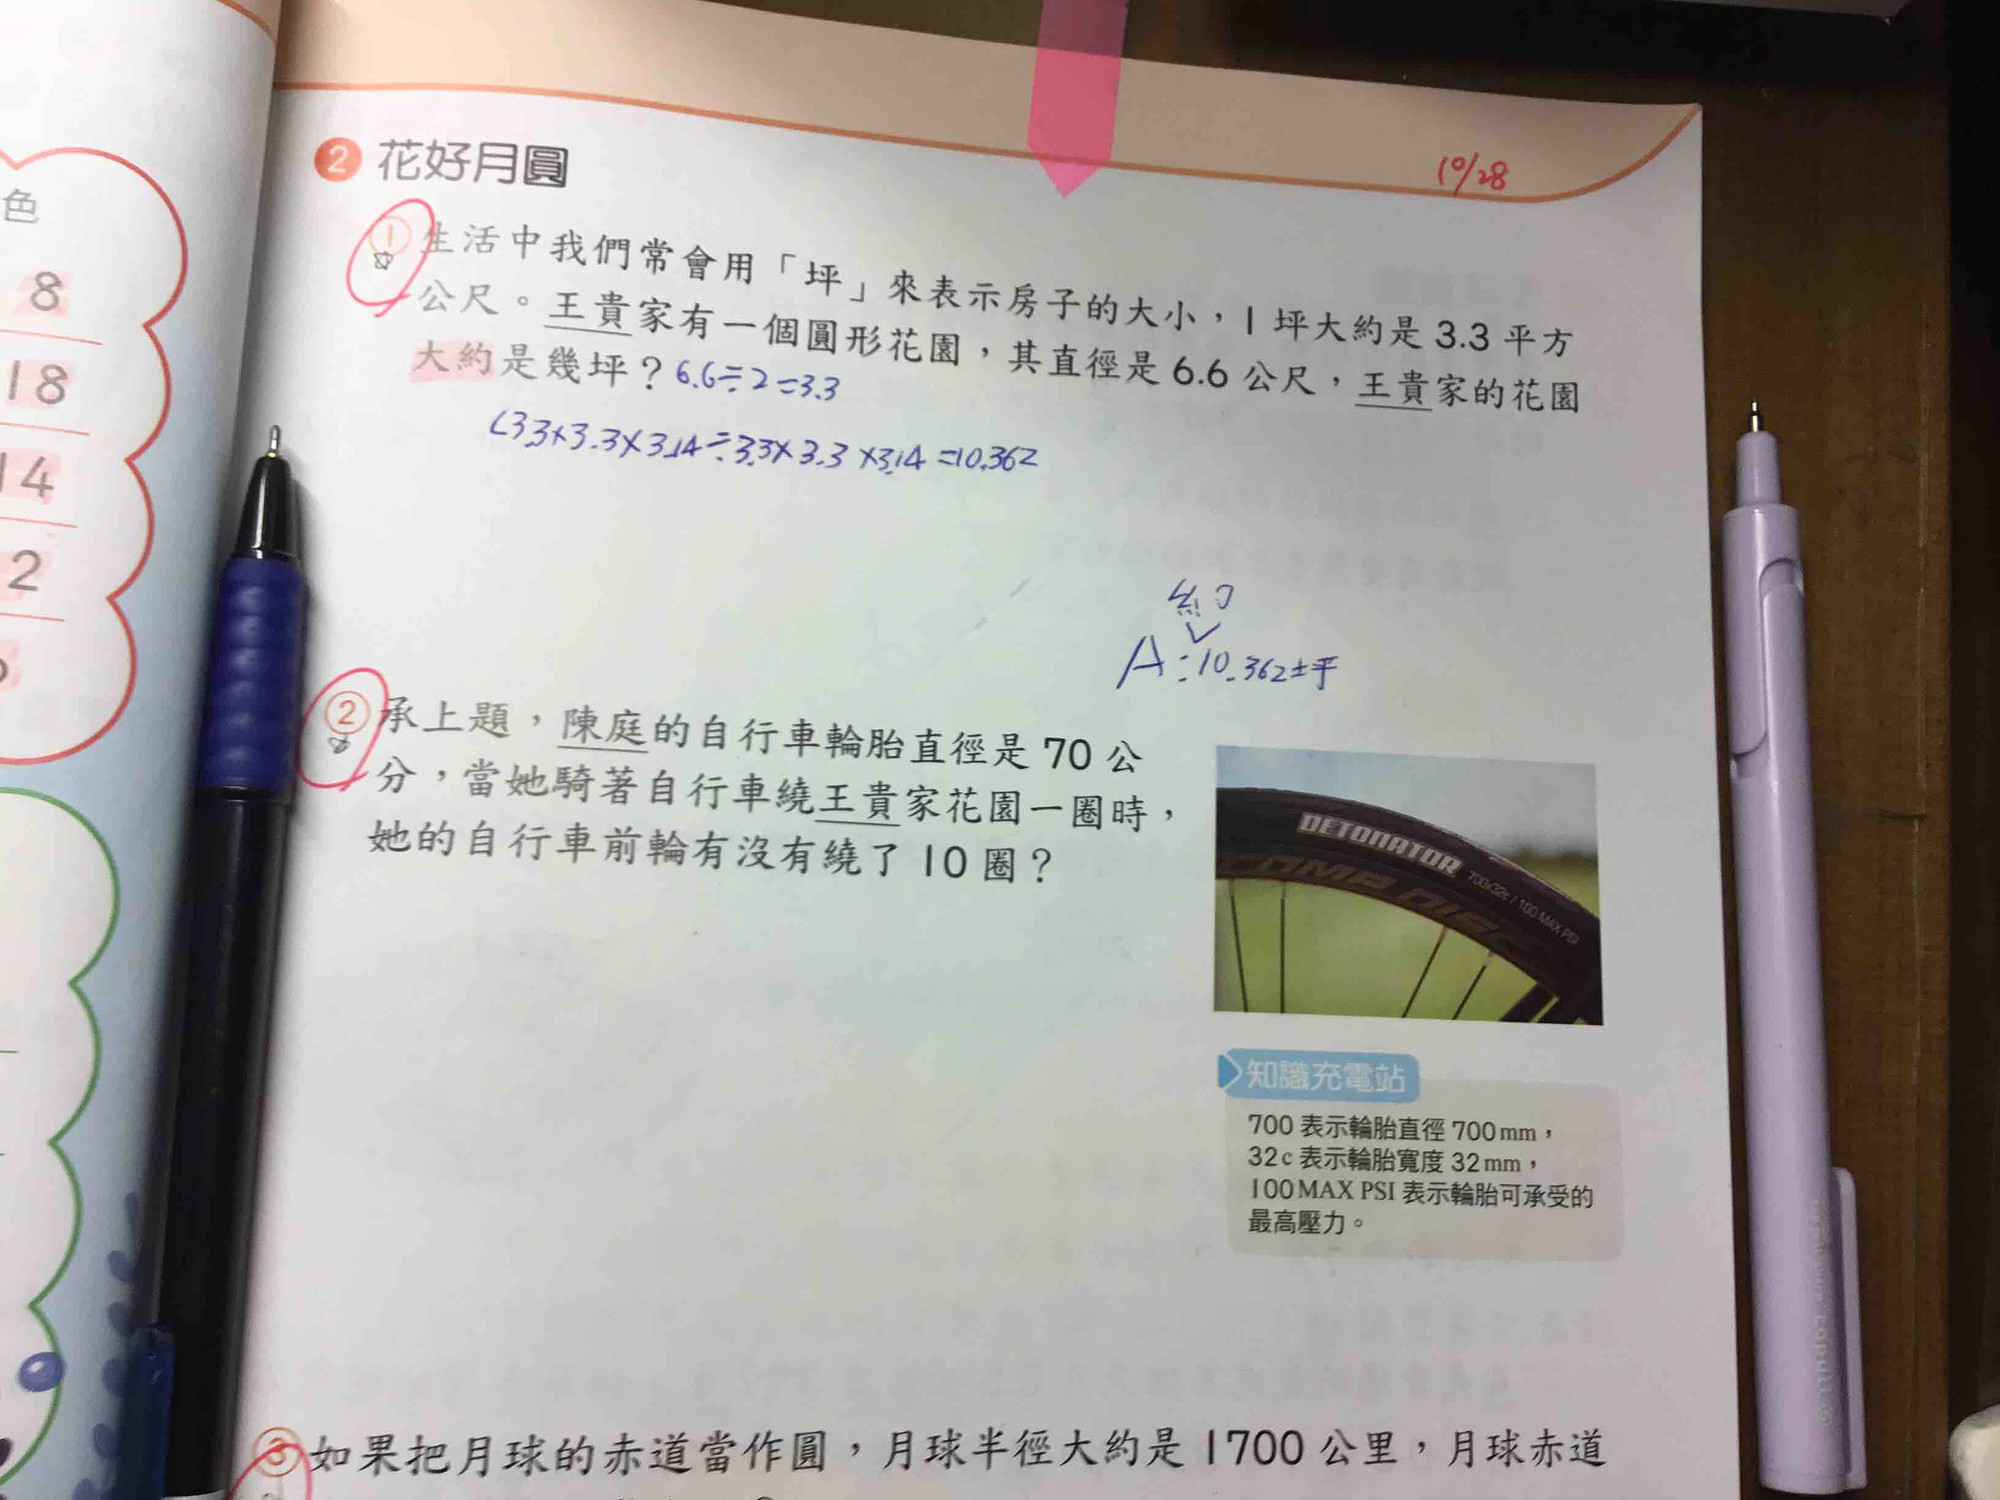 色
8
18
14
2
10/28
2 花好月圓
① 生活中我們常會用「坪」來表示房子的大小，1 坪大約是 3.3 平方
公尺。王貴家有一個圓形花園，其直徑是 6.6 公尺，王貴家的花園
大約是幾坪？6.6÷2=3.3
(3.3×3.3×3.14÷3.3×3.3×3.14=10.362
約
A:10.362坪
② 承上題，陳庭的自行車輪胎直徑是 70 公
分，當她騎著自行車繞王貴家花園一圈時，
她的自行車前輪有沒有繞了 10 圈？
DETONATOR
COMP DISC
700x32c / 100 MAX PSI
知識充電站
700 表示輪胎直徑 700mm，
32c 表示輪胎寬度 32mm，
100MAX PSI 表示輪胎可承受的
最高壓力。
③ 如果把月球的赤道當作圓，月球半徑大約是 1700 公里，月球赤道